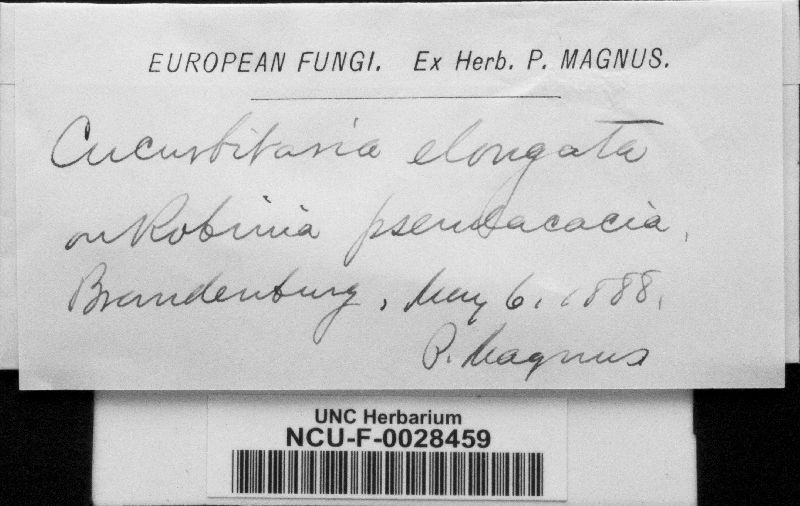 EUROPEAN FUNGI. Ex Herb. P. MAGNUS.
Cucurbitaria elongata
on Robinia pseudacacia,
Brandenburg, May 6, 1888.
P. Magnus
UNC Herbarium
NCU-F-0028459